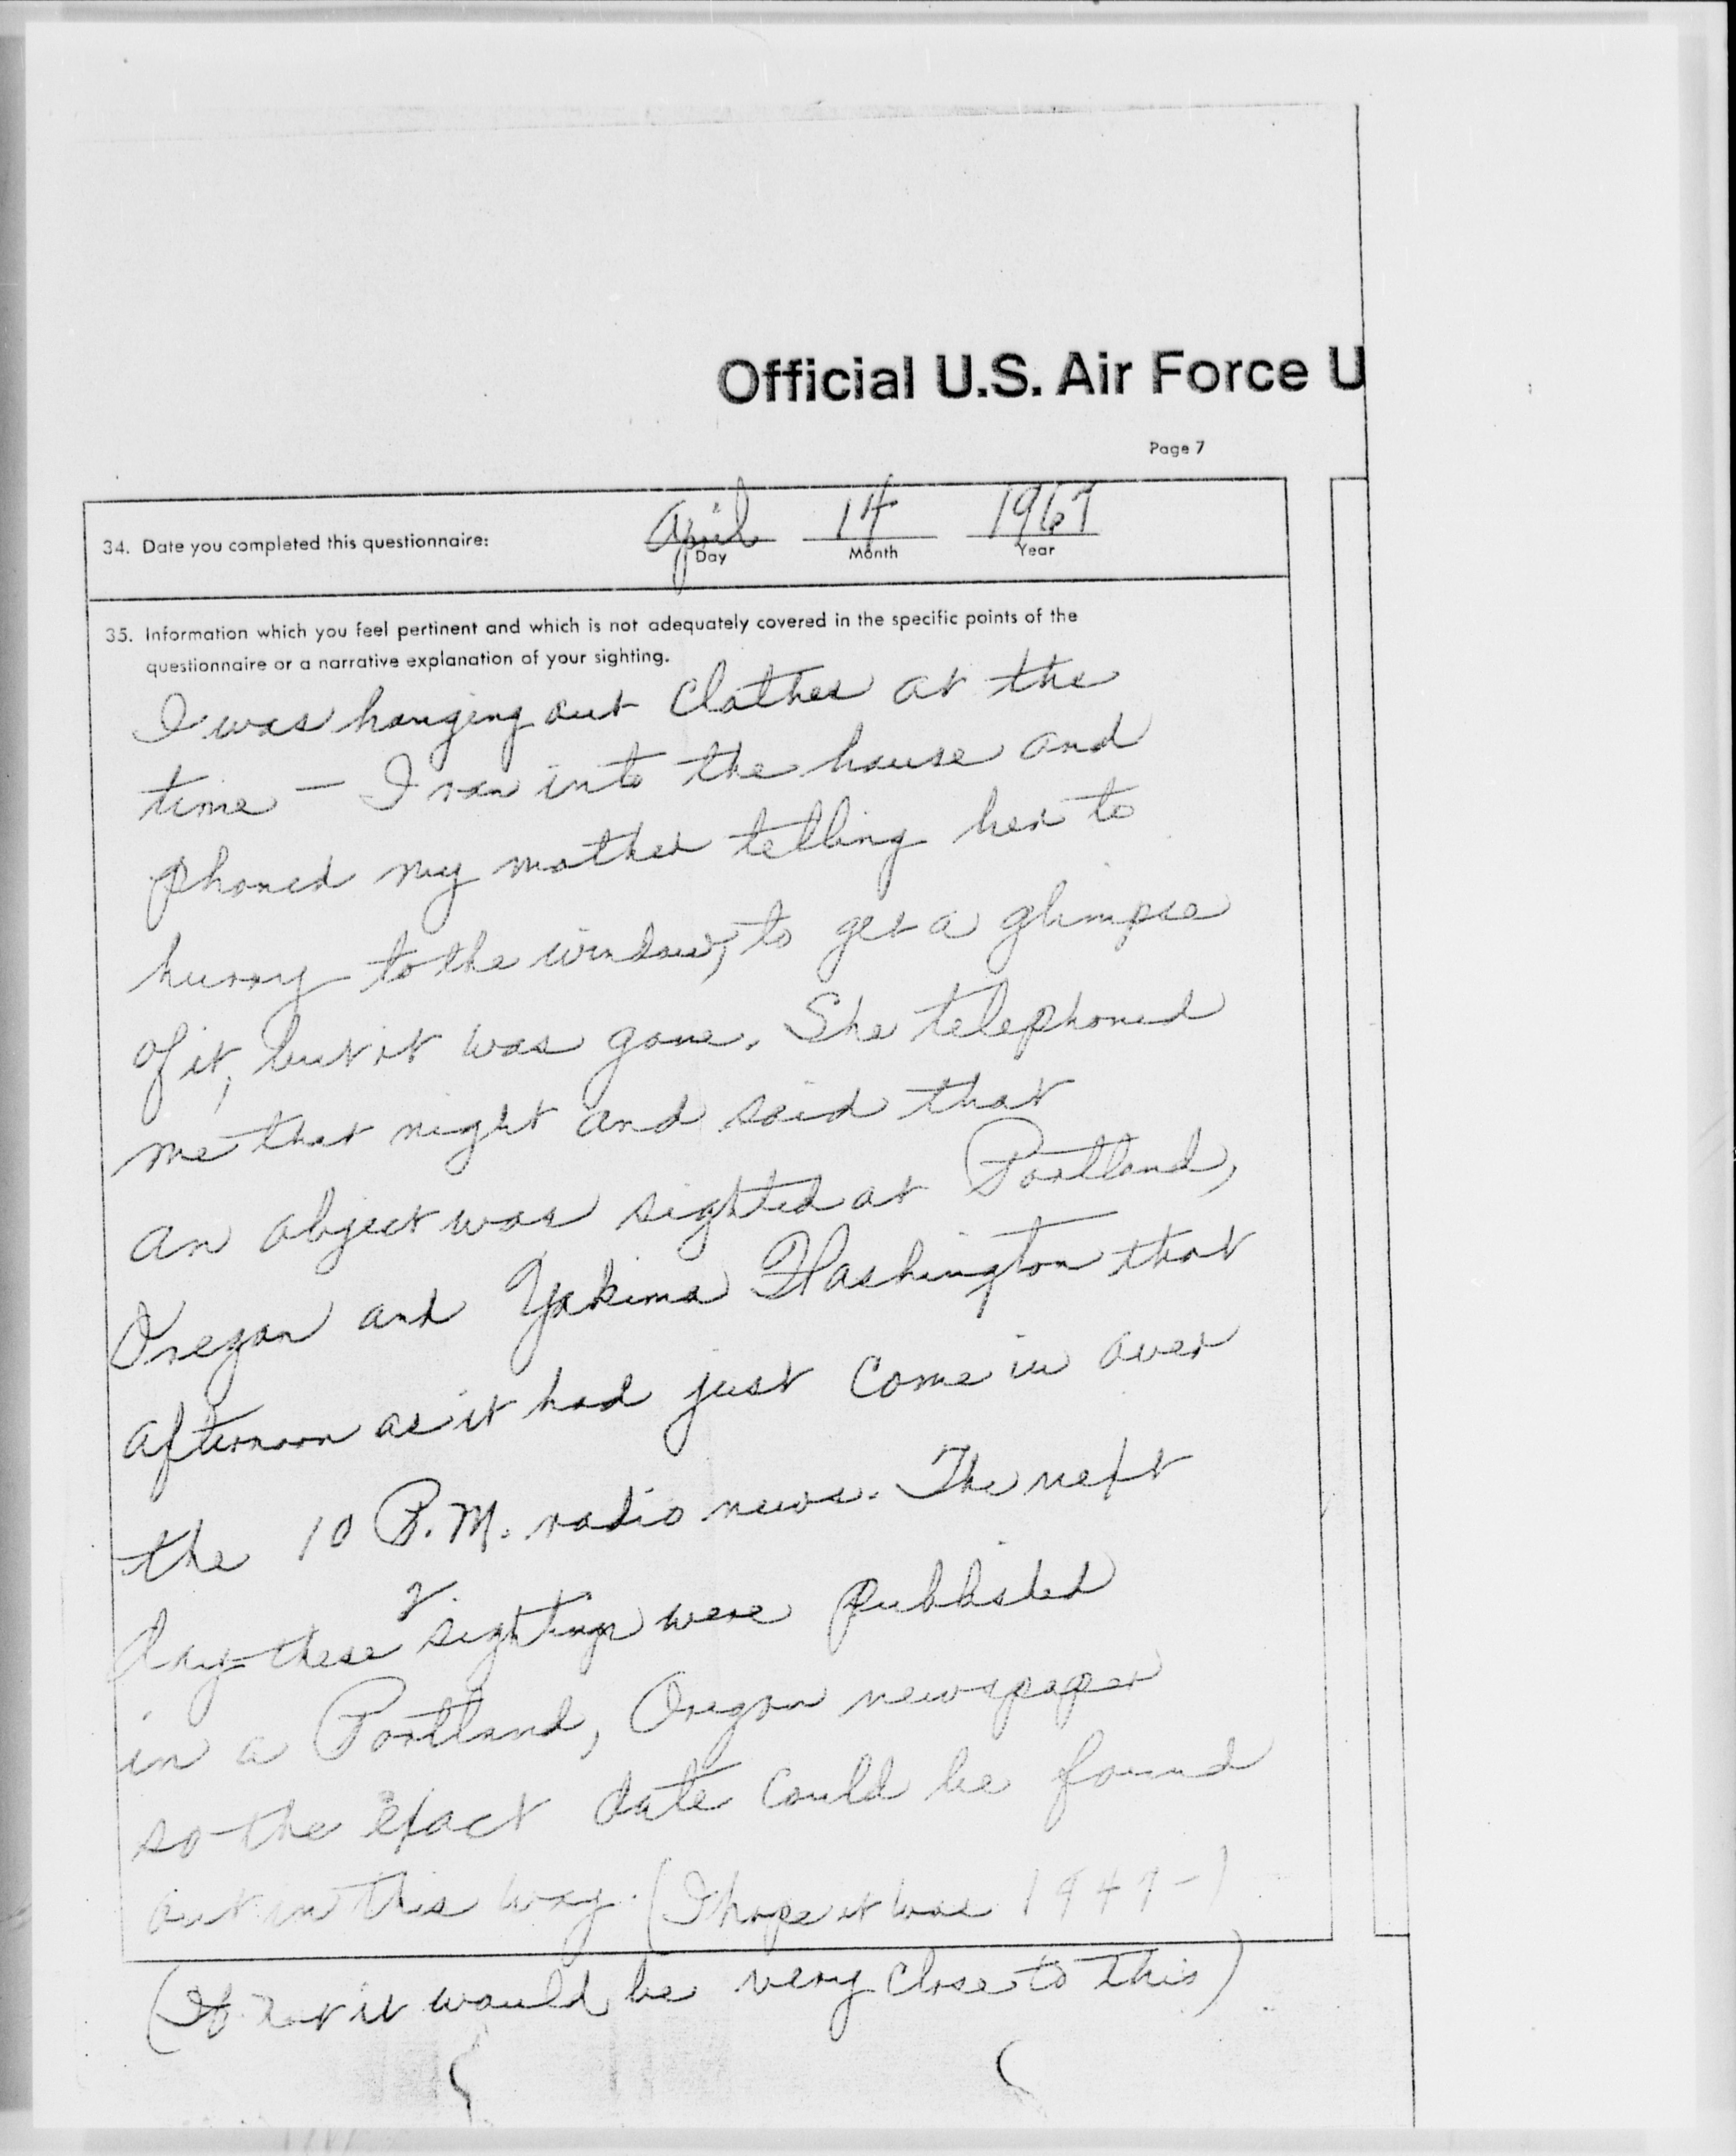 Official U.S. Air Force U
Page 7
34. Date you completed this questionnaire: April 14 1967
Day Month Year
35. Information which you feel pertinent and which is not adequately covered in the specific points of the
questionnaire or a narrative explanation of your sighting.
I was hanging out clothes at the
time – I ran into the house and
phoned my mother telling her to
hurry to the window, to get a glimpse
of it, but it was gone. She telephoned
me that night and said that
an object was sighted at Portland,
Oregon and Yakima Washington that
afternoon as it had just come in over
the 10 P.M. radio news. The next
day these 2 sightings were published
in a Portland, Oregon newspaper
so the exact date could be found
out in this way. (I hope it was 1947-)
(If not it would be very close to this)